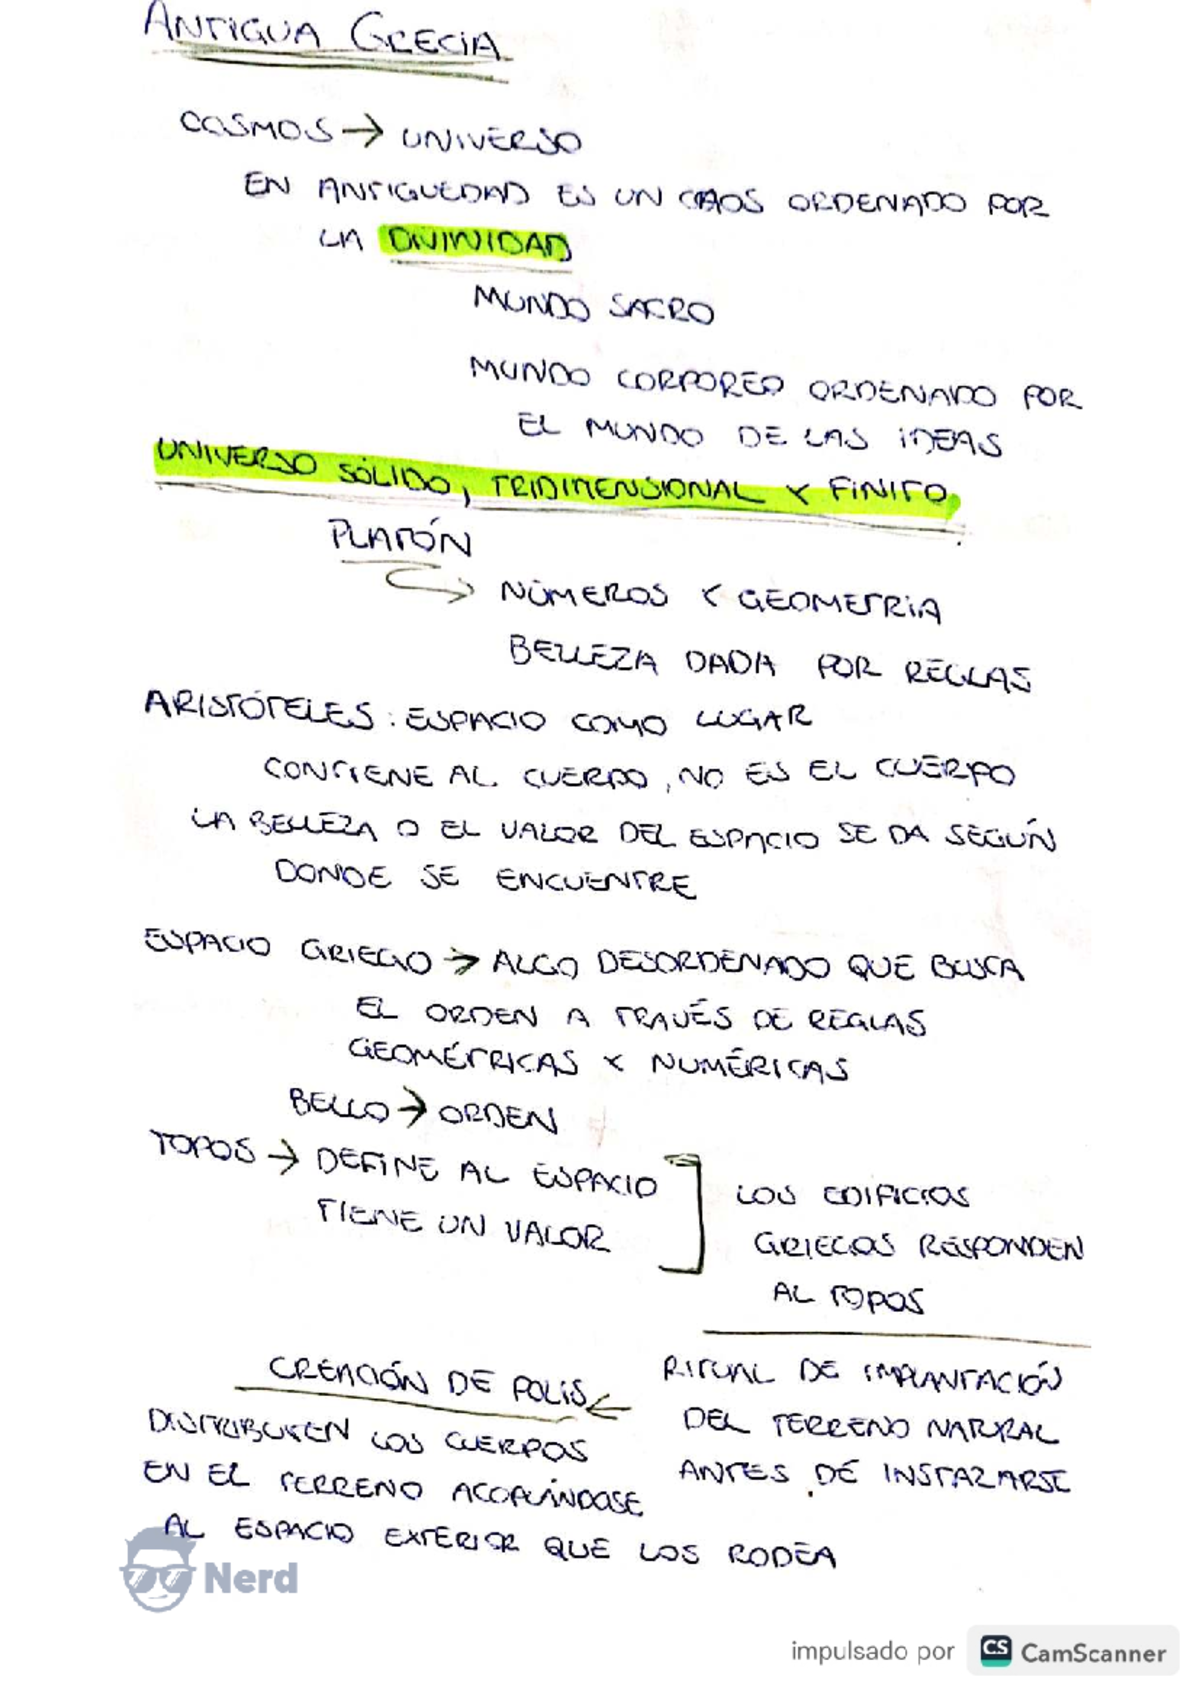 ANTIGUA GRECIA
COSMOS → UNIVERSO
EN ANTIGUEDAD ES UN CAOS ORDENADO POR
LA DIVINIDAD
MUNDO SACRO
MUNDO CORPOREO ORDENADO POR
EL MUNDO DE LAS IDEAS
UNIVERSO SÓLIDO, TRIDIMENSIONAL Y FINITO.
PLATÓN
NÚMEROS Y GEOMETRIA
BELLEZA DADA POR REGLAS
ARISTÓTELES: ESPACIO COMO LUGAR
CONTIENE AL CUERPO, NO ES EL CUERPO
LA BELLEZA O EL VALOR DEL ESPACIO SE DA SEGÚN
DONDE SE ENCUENTRE
ESPACIO GRIEGO → ALGO DESORDENADO QUE BUSCA
EL ORDEN A TRAVÉS DE REGLAS
GEOMÉTRICAS Y NUMÉRICAS
BELLO → ORDEN
TOPOS → DEFINE AL ESPACIO
TIENE UN VALOR
LOS EDIFICIOS
GRIEGOS RESPONDEN
AL TOPOS
RITUAL DE IMPLANTACIÓN
DEL TERRENO NATURAL
ANTES DE INSTALARSE
CREACIÓN DE POLIS ←
DISTRIBUYEN LOS CUERPOS
EN EL TERRENO ACOPLÁNDOSE
AL ESPACIO EXTERIOR QUE LOS RODEA
Nerd
impulsado por CS CamScanner